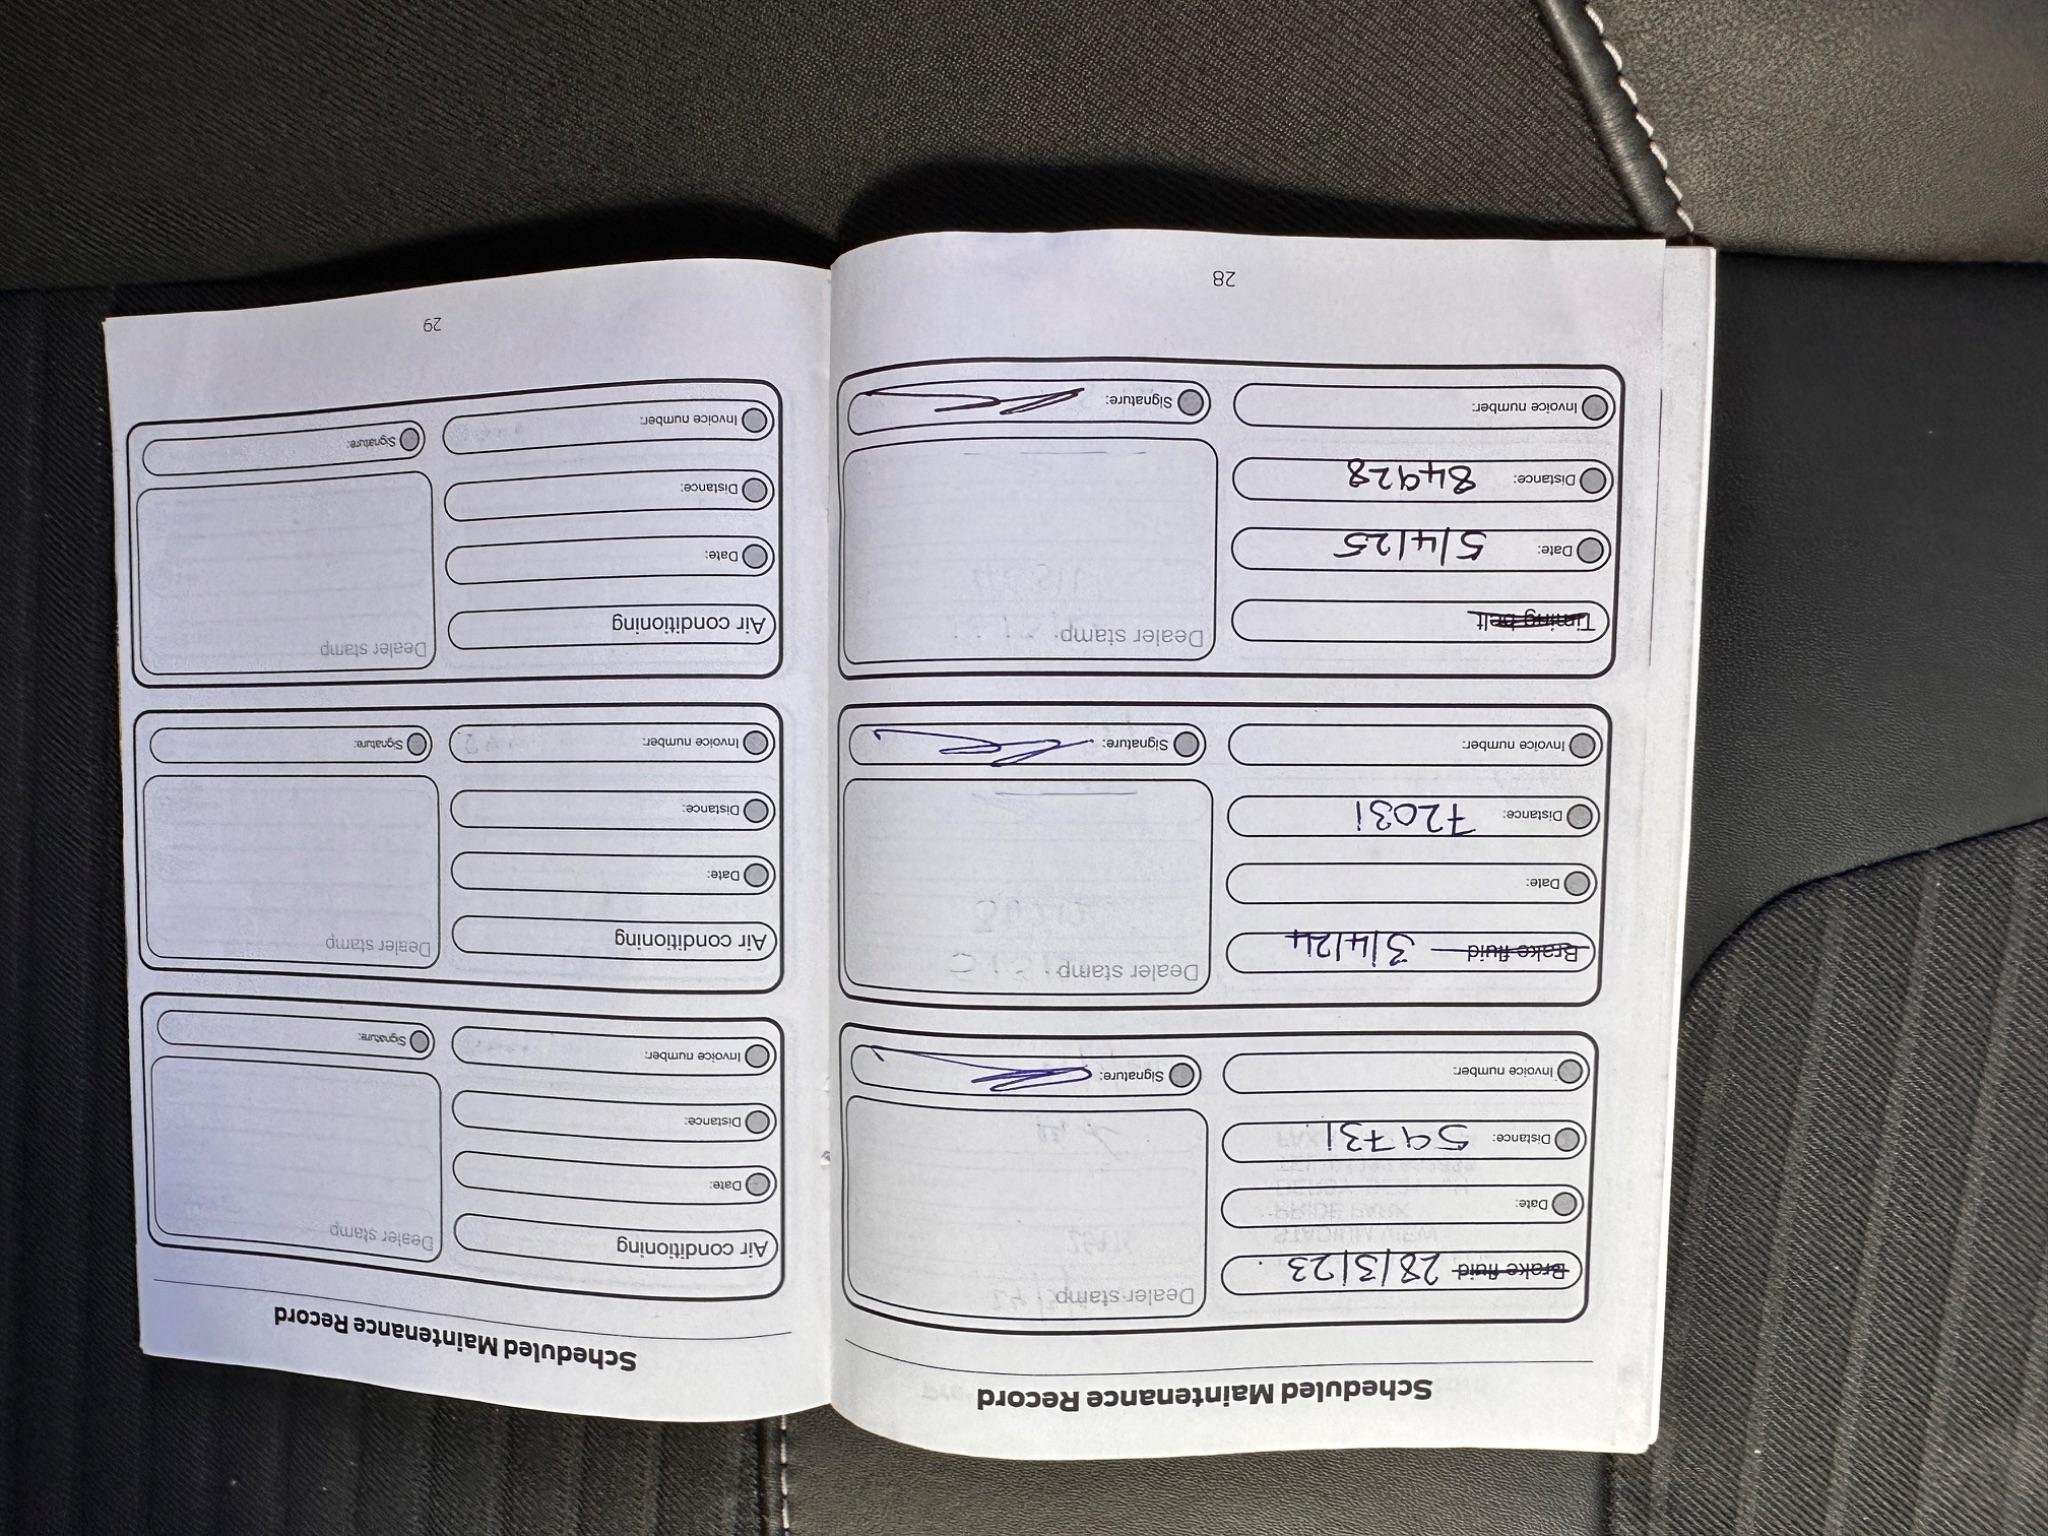 Scheduled Maintenance Record
Brake fluid 28/3/23
Date:
Distance: 59731
Invoice number:
Dealer stamp
Signature:
Brake fluid 3/4/24
Date:
Distance: 72031
Invoice number:
Dealer stamp
Signature:
Timing belt
Date: 5/4/25
Distance: 84928
Invoice number:
Dealer stamp
Signature:
28
Scheduled Maintenance Record
Air conditioning
Date:
Distance:
Invoice number:
Dealer stamp
Signature:
Air conditioning
Date:
Distance:
Invoice number:
Dealer stamp
Signature:
Air conditioning
Date:
Distance:
Invoice number:
Dealer stamp
Signature:
29